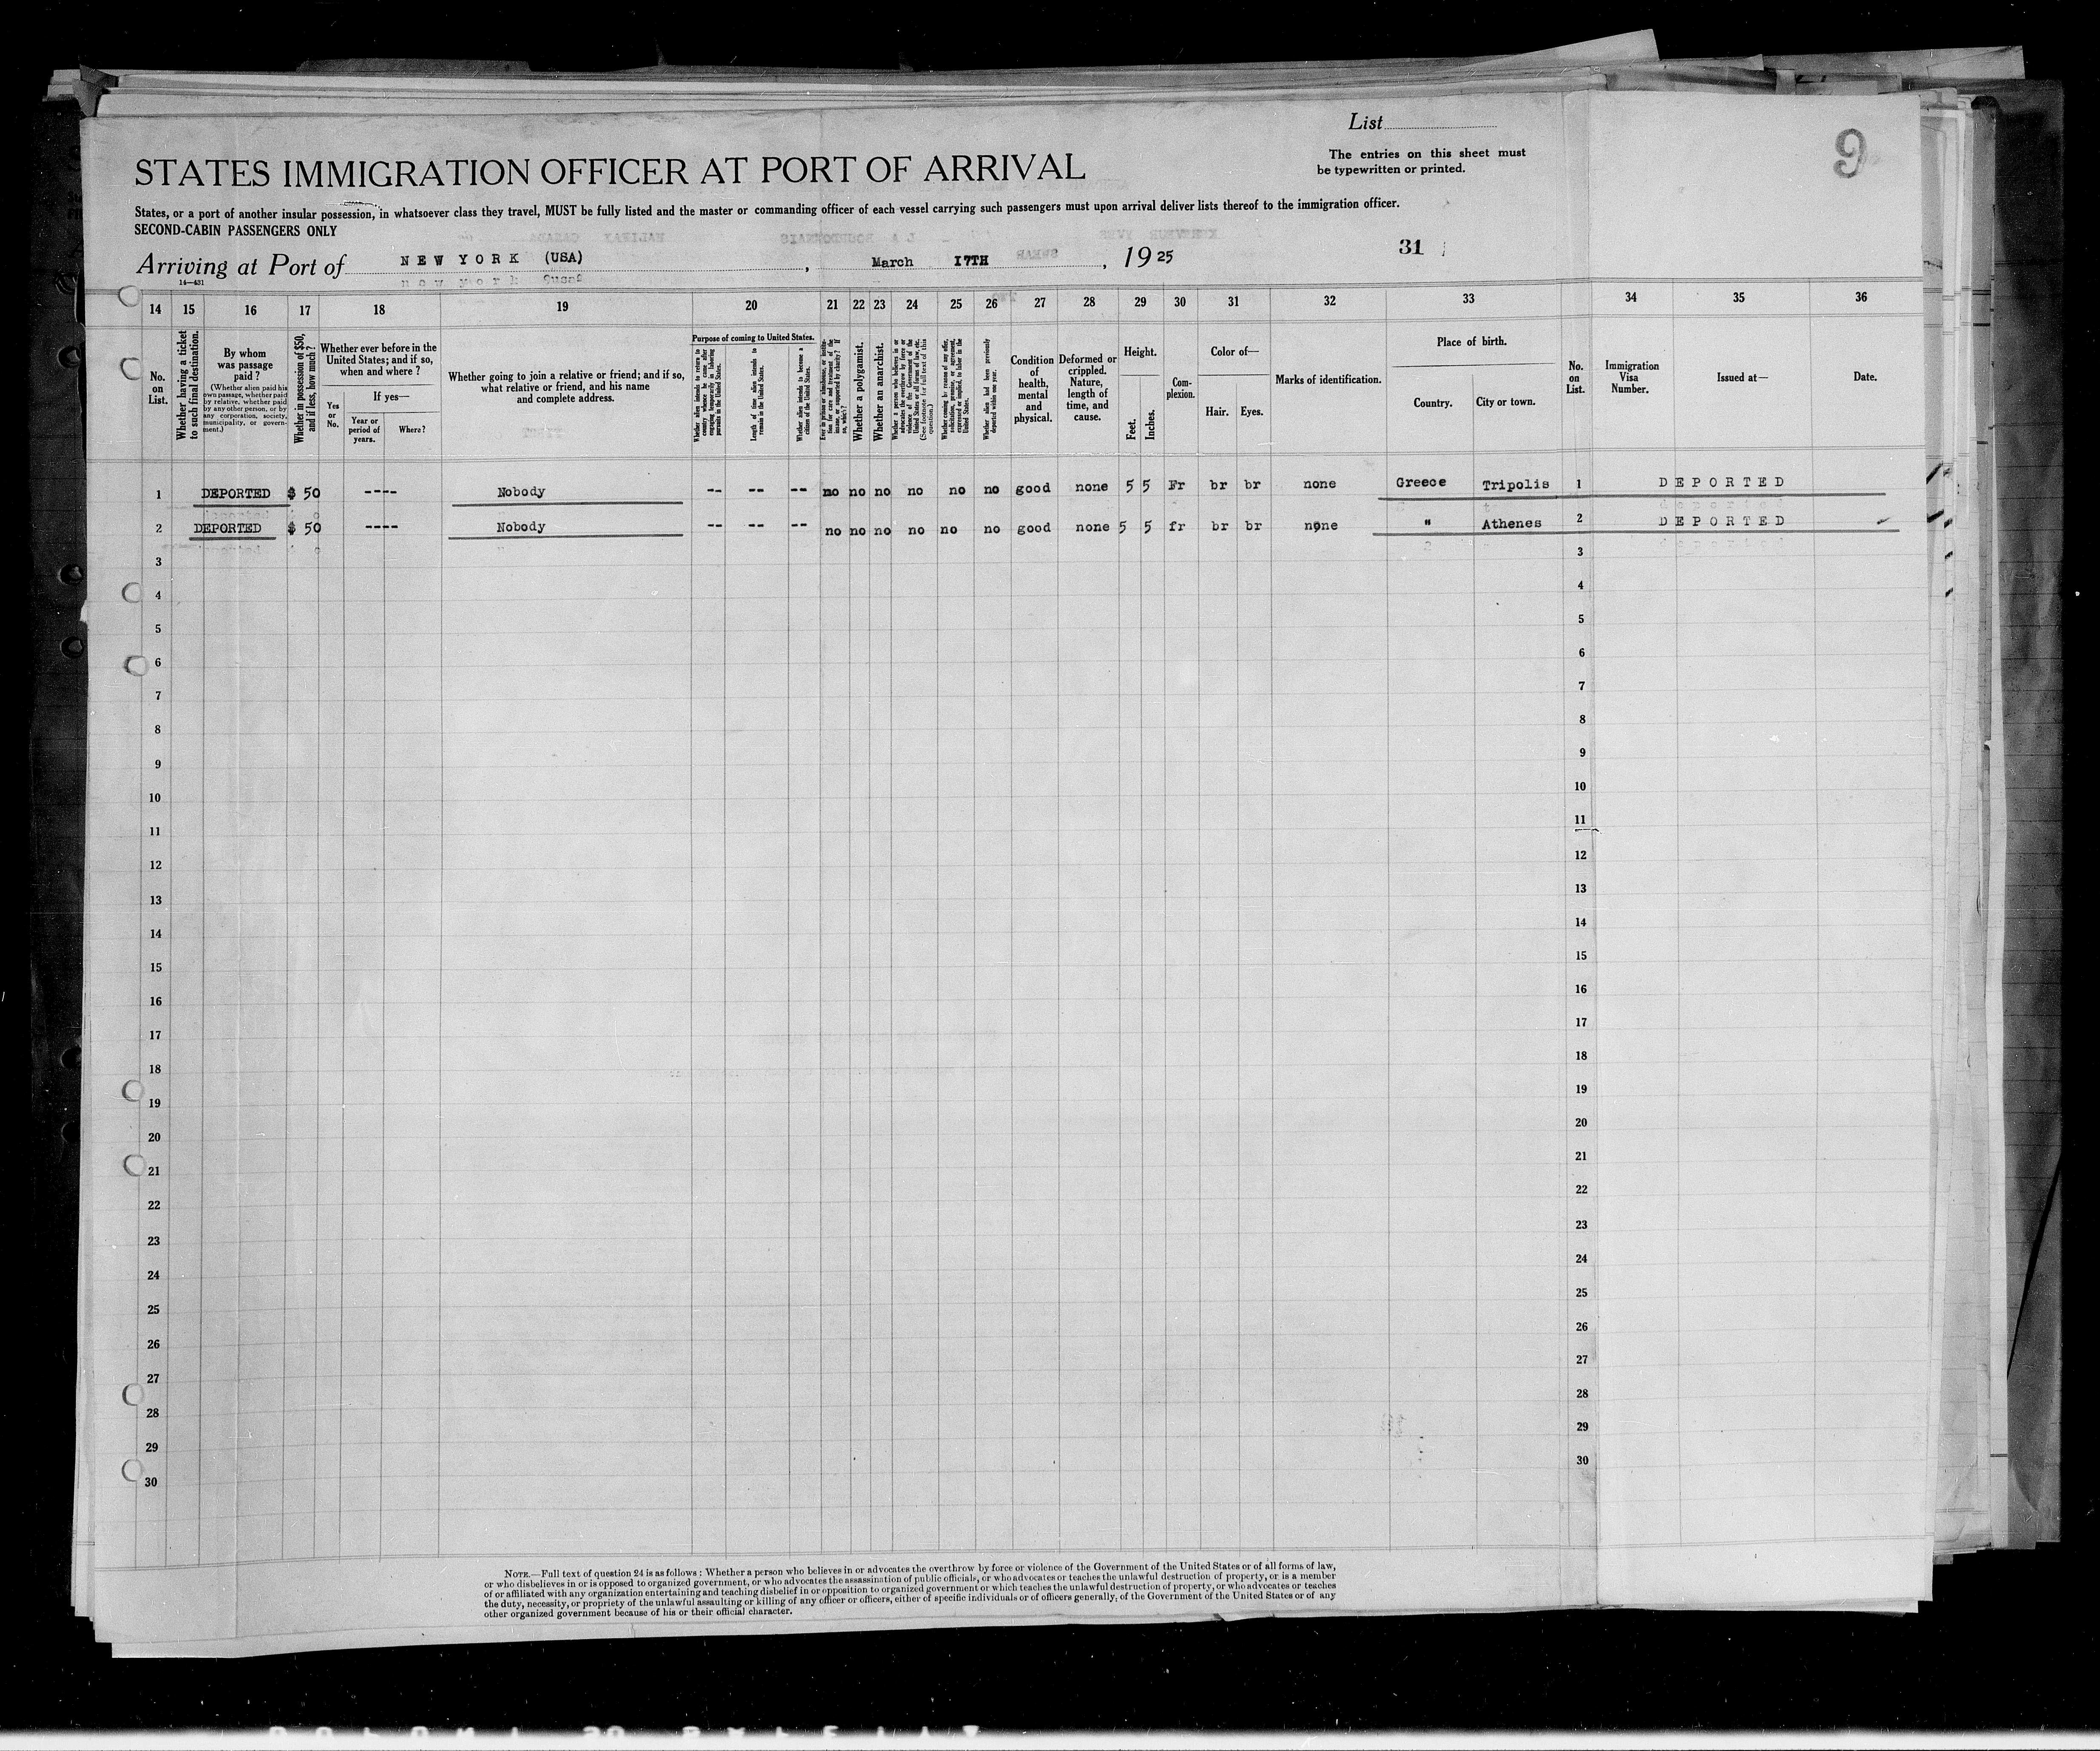 List
The entries on this sheet must
be typewritten or printed.
9
STATES IMMIGRATION OFFICER AT PORT OF ARRIVAL
States, or a port of another insular possession, in whatsoever class they travel, MUST be fully listed and the master or commanding officer of each vessel carrying such passengers must upon arrival deliver lists thereof to the immigration officer.
SECOND-CABIN PASSENGERS ONLY
Arriving at Port of NEW YORK (USA), March 17TH, 1925
31
14—431
14 15 16 17 18 19 20 21 22 23 24 25 26 27 28 29 30 31 32 33 34 35 36
No. on List.
Whether having a ticket to such final destination.
By whom was passage paid?
(Whether alien paid his own passage, whether paid by relative, whether paid by any other person, or by any corporation, society, municipality, or government.)
Whether in possession of $50, and if less, how much?
Whether ever before in the United States; and if so, when and where?
Yes or No.
If yes—
Year or period of years.
Where?
Whether going to join a relative or friend; and if so, what relative or friend, and his name and complete address.
Purpose of coming to United States.
Whether alien intends to return to country whence he came after engaging temporarily in laboring pursuits in the United States.
Length of time alien intends to remain in the United States.
Whether alien intends to become a citizen of the United States.
Ever in prison or almshouse, or institution for care and treatment of the insane, or supported by charity? If so, which?
Whether a polygamist.
Whether an anarchist.
Whether a person who believes in or advocates the overthrow by force or violence of the Government of the United States or all forms of law, etc. (See footnote for full text of this question.)
Whether coming by reason of any offer, solicitation, promise, or agreement, expressed or implied, to labor in the United States.
Whether alien had been previously deported within one year.
Condition of health, mental and physical.
Deformed or crippled. Nature, length of time, and cause.
Height.
Feet.
Inches.
Complexion.
Color of—
Hair.
Eyes.
Marks of identification.
Place of birth.
Country.
City or town.
No. on List.
Immigration Visa Number.
Issued at—
Date.
1 DEPORTED $ 50 ---- Nobody -- -- -- no no no no no no good none 5 5 Fr br br none Greece Tripolis 1 DEPORTED
2 DEPORTED $ 50 ---- Nobody -- -- -- no no no no no no good none 5 5 fr br br none " Athenes 2 DEPORTED
3 3
4 4
5 5
6 6
7 7
8 8
9 9
10 10
11 11
12 12
13 13
14 14
15 15
16 16
17 17
18 18
19 19
20 20
21 21
22 22
23 23
24 24
25 25
26 26
27 27
28 28
29 29
30 30
NOTE.—Full text of question 24 is as follows: Whether a person who believes in or advocates the overthrow by force or violence of the Government of the United States or of all forms of law,
or who disbelieves in or is opposed to organized government, or who advocates the assassination of public officials, or who advocates or teaches the unlawful destruction of property, or is a member
of or affiliated with any organization entertaining and teaching disbelief in or opposition to organized government or which teaches the unlawful destruction of property, or who advocates or teaches
the duty, necessity, or propriety of the unlawful assaulting or killing of any officer or officers, either of specific individuals or of officers generally, of the Government of the United States or of any
other organized government because of his or their official character.